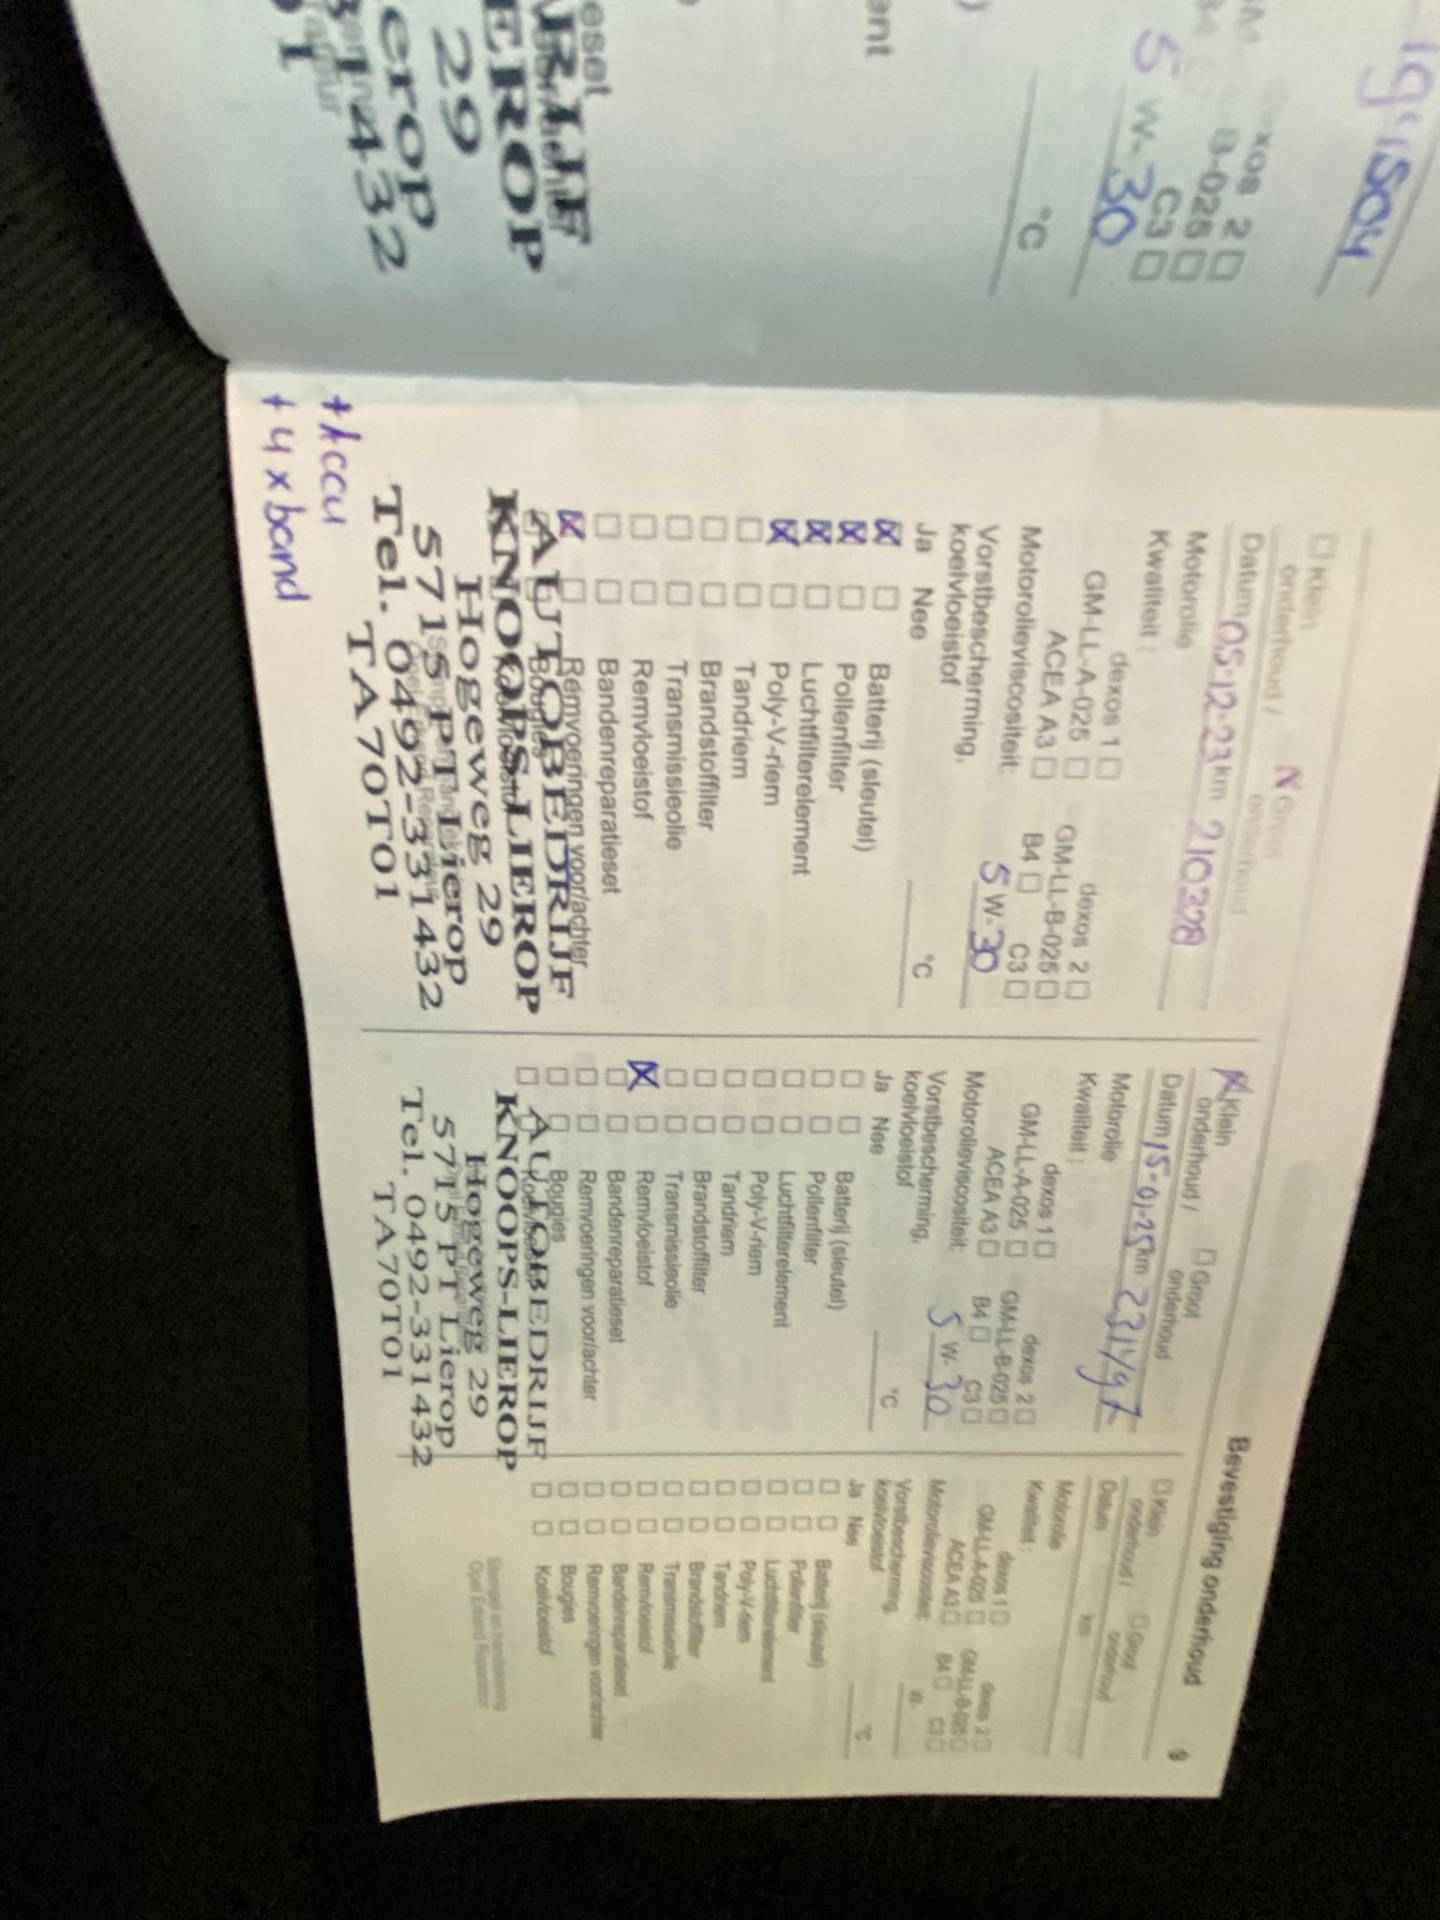 191504
xos 2 ☐
B-025 ☐
C3 ☐
5 W-30
°C
ant
eset
ARIJF
EROP
29
erop
1432
01
Bevestiging onderhoud 9
☐ Klein onderhoud / ☒ Groot onderhoud
Datum 05-12-23 km 210398
Motorolie
Kwaliteit :
dexos 1 ☐ dexos 2 ☐
GM-LL-A-025 ☐ GM-LL-B-025 ☐
ACEA A3 ☐ B4 ☐ C3 ☐
Motorolieviscositeit: 5 W-30
Vorstbescherming,
koelvloeistof °C
Ja Nee
☒ ☐ Batterij (sleutel)
☒ ☐ Pollenfilter
☒ ☐ Luchtfilterelement
☒ ☐ Poly-V-riem
☐ ☐ Tandriem
☐ ☐ Brandstoffilter
☐ ☐ Transmissieolie
☐ ☐ Remvloeistof
☐ ☐ Bandenreparatieset
☒ ☐ Remvoeringen voor/achter
☐ ☐ Bougies
AUTOBEDRIJF
KNOOPS-LIEROP
Hogeweg 29
5715 PT Lierop
Tel. 0492-331432
TA70T01
+Accu
+ 4 x band
☒ Klein onderhoud / ☐ Groot onderhoud
Datum 15-01-25 km 231497
Motorolie
Kwaliteit :
dexos 1 ☐ dexos 2 ☐
GM-LL-A-025 ☐ GM-LL-B-025 ☐
ACEA A3 ☐ B4 ☐ C3 ☐
Motorolieviscositeit: 5 W-30
Vorstbescherming,
koelvloeistof °C
Ja Nee
☐ ☐ Batterij (sleutel)
☐ ☐ Pollenfilter
☐ ☐ Luchtfilterelement
☐ ☐ Poly-V-riem
☐ ☐ Tandriem
☐ ☐ Brandstoffilter
☐ ☐ Transmissieolie
☒ ☐ Remvloeistof
☐ ☐ Bandenreparatieset
☐ ☐ Remvoeringen voor/achter
☐ ☐ Bougies
☐ ☐ Koelvloeistof
AUTOBEDRIJF
KNOOPS-LIEROP
Hogeweg 29
5715 PT Lierop
Tel. 0492-331432
TA70T01
☐ Klein onderhoud / ☐ Groot onderhoud
Datum km
Motorolie
Kwaliteit :
dexos 1 ☐ dexos 2 ☐
GM-LL-A-025 ☐ GM-LL-B-025 ☐
ACEA A3 ☐ B4 ☐ C3 ☐
Motorolieviscositeit: W-
Vorstbescherming,
koelvloeistof °C
Ja Nee
☐ ☐ Batterij (sleutel)
☐ ☐ Pollenfilter
☐ ☐ Luchtfilterelement
☐ ☐ Poly-V-riem
☐ ☐ Tandriem
☐ ☐ Brandstoffilter
☐ ☐ Transmissieolie
☐ ☐ Remvloeistof
☐ ☐ Bandenreparatieset
☐ ☐ Remvoeringen voor/achter
☐ ☐ Bougies
☐ ☐ Koelvloeistof
Stempel en handtekening
Opel Erkend Reparateur